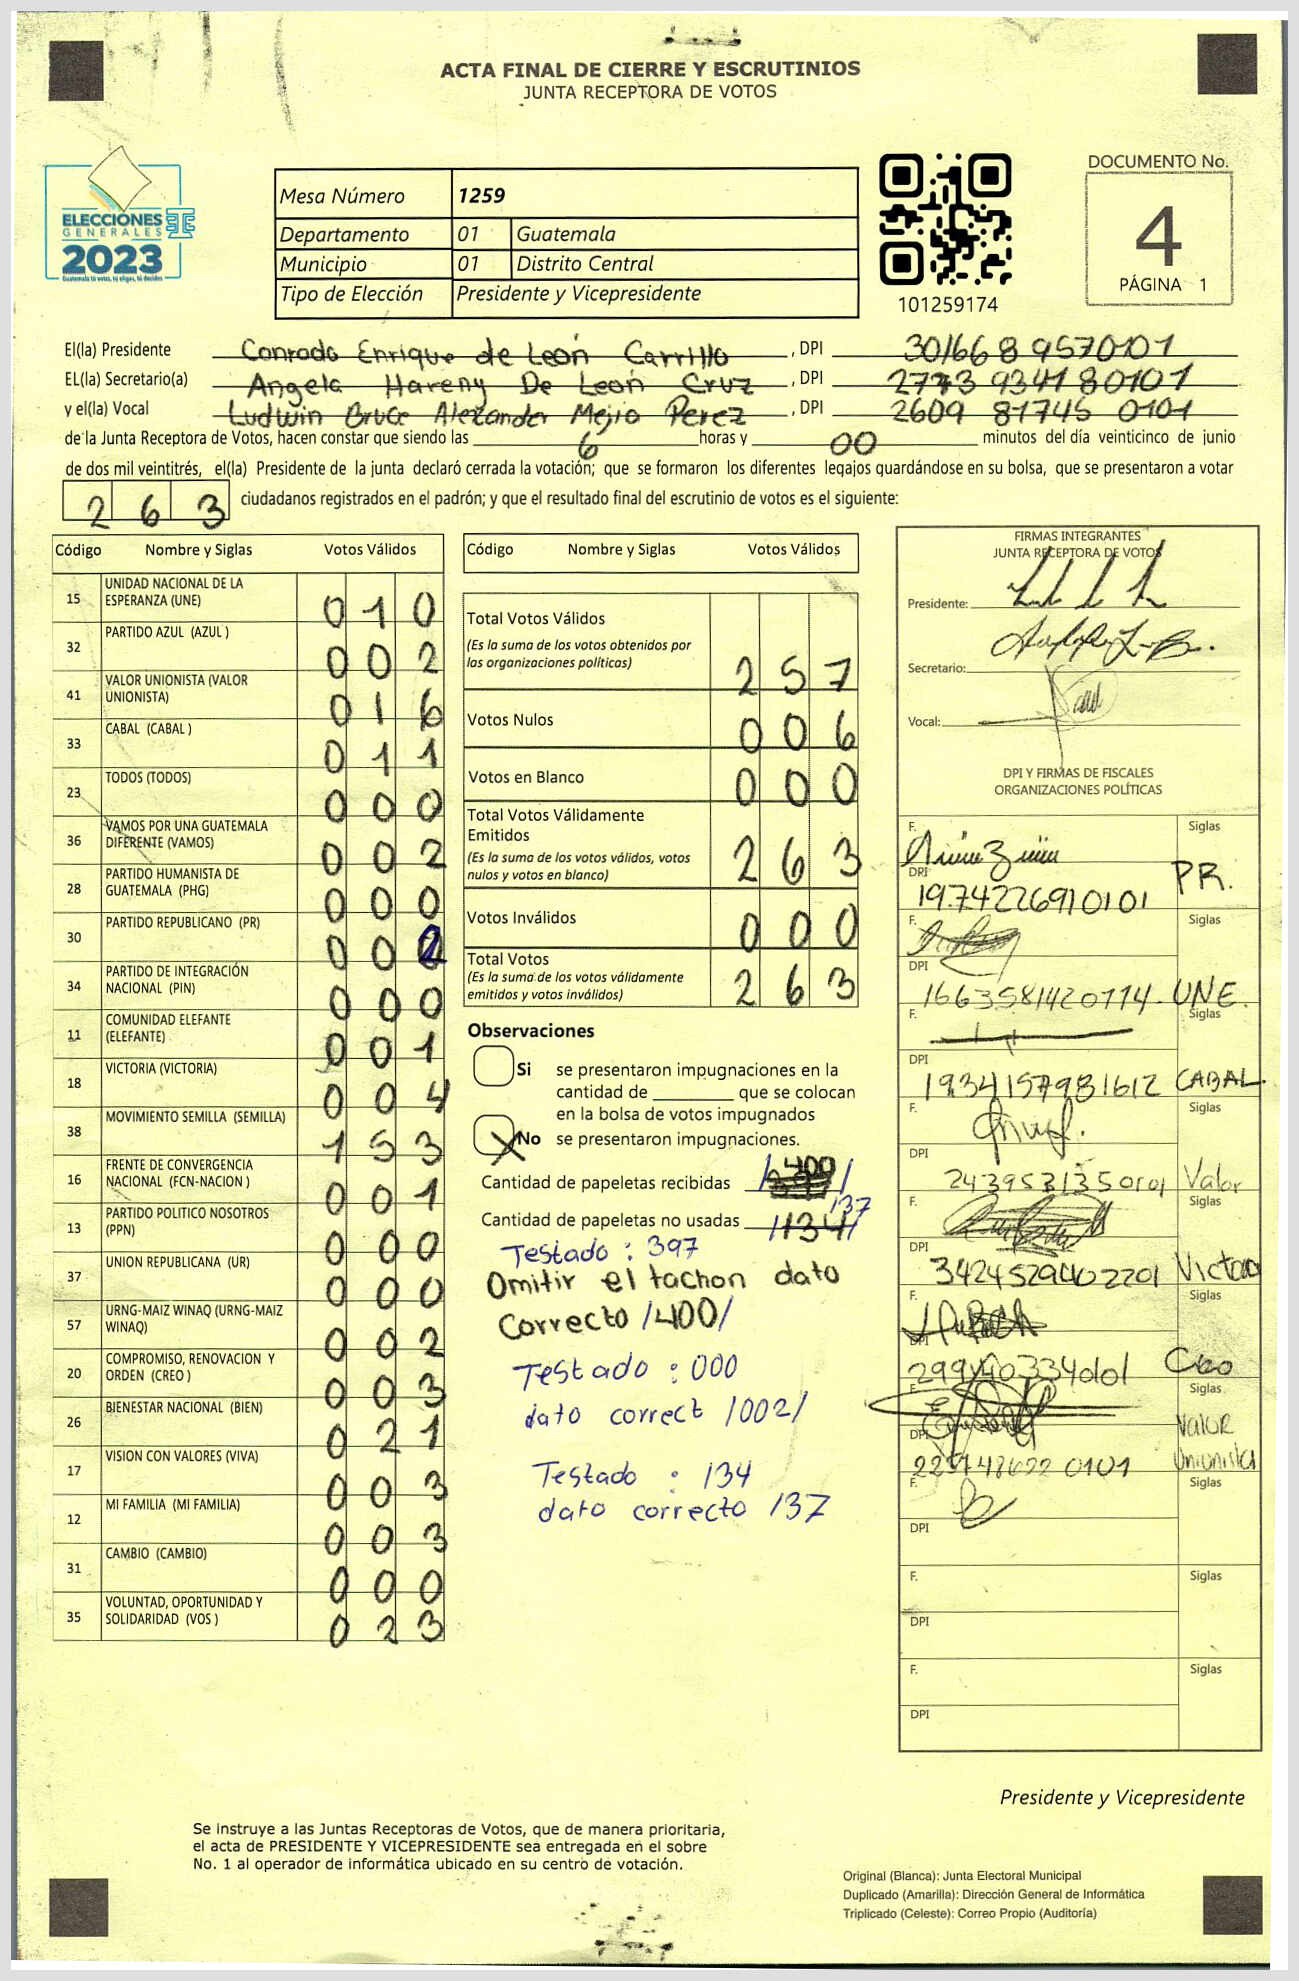 ACTA FINAL DE CIERRE Y ESCRUTINIOS
JUNTA RECEPTORA DE VOTOS
ELECCIONES
GENERALES
2023
Guatemala tú votas, tú eliges, tú decides
Mesa Número 1259
Departamento 01 Guatemala
Municipio 01 Distrito Central
Tipo de Elección Presidente y Vicepresidente
101259174
DOCUMENTO No.
4
PÁGINA 1
El(la) Presidente Conrado Enrique de León Carrillo , DPI 3016689570101
EL(la) Secretario(a) Angela Hareny De León Cruz , DPI 2773934180101
y el(la) Vocal Ludwin Bruce Alexander Mejio Perez , DPI 2609 81745 0101
de la Junta Receptora de Votos, hacen constar que siendo las 6 horas y 00 minutos del día veinticinco de junio
de dos mil veintitrés, el(la) Presidente de la junta declaró cerrada la votación; que se formaron los diferentes legajos guardándose en su bolsa, que se presentaron a votar
263 ciudadanos registrados en el padrón; y que el resultado final del escrutinio de votos es el siguiente:
Código Nombre y Siglas Votos Válidos
15 UNIDAD NACIONAL DE LA ESPERANZA (UNE) 010
32 PARTIDO AZUL (AZUL ) 002
41 VALOR UNIONISTA (VALOR UNIONISTA) 016
33 CABAL (CABAL ) 011
23 TODOS (TODOS) 000
36 VAMOS POR UNA GUATEMALA DIFERENTE (VAMOS) 002
28 PARTIDO HUMANISTA DE GUATEMALA (PHG) 000
30 PARTIDO REPUBLICANO (PR) 002
34 PARTIDO DE INTEGRACIÓN NACIONAL (PIN) 000
11 COMUNIDAD ELEFANTE (ELEFANTE) 001
18 VICTORIA (VICTORIA) 004
38 MOVIMIENTO SEMILLA (SEMILLA) 153
16 FRENTE DE CONVERGENCIA NACIONAL (FCN-NACION ) 001
13 PARTIDO POLITICO NOSOTROS (PPN) 000
37 UNION REPUBLICANA (UR) 000
57 URNG-MAIZ WINAQ (URNG-MAIZ WINAQ) 002
20 COMPROMISO, RENOVACION Y ORDEN (CREO ) 003
26 BIENESTAR NACIONAL (BIEN) 021
17 VISION CON VALORES (VIVA) 003
12 MI FAMILIA (MI FAMILIA) 003
31 CAMBIO (CAMBIO) 000
35 VOLUNTAD, OPORTUNIDAD Y SOLIDARIDAD (VOS ) 023
Código Nombre y Siglas Votos Válidos
Total Votos Válidos
(Es la suma de los votos obtenidos por
las organizaciones políticas) 257
Votos Nulos 006
Votos en Blanco 000
Total Votos Válidamente
Emitidos
(Es la suma de los votos válidos, votos
nulos y votos en blanco) 263
Votos Inválidos 000
Total Votos
(Es la suma de los votos válidamente
emitidos y votos inválidos) 263
Observaciones
Si se presentaron impugnaciones en la
cantidad de ________ que se colocan
en la bolsa de votos impugnados
X No se presentaron impugnaciones.
Cantidad de papeletas recibidas /400/
Cantidad de papeletas no usadas /134/ 137
Testado : 397
Omitir el tachon dato
Correcto /400/
Testado : 000
dato correct /002/
Testado : 134
dato correcto 137
FIRMAS INTEGRANTES
JUNTA RECEPTORA DE VOTOS
Presidente:
Secretario:
Vocal:
DPI Y FIRMAS DE FISCALES
ORGANIZACIONES POLÍTICAS
F. Siglas
DPI 1974226910101 PR.
F. Siglas
DPI 1663581420114 UNE.
F. Siglas
DPI 1934157981612 CABAL
F. Siglas
DPI 2439531350101 Valor
F. Siglas
DPI 3424529402201 Victoria
F. Siglas
DPI Creo
F. Siglas
DPI Valor Unionista
F. Siglas
DPI
F. Siglas
DPI
F. Siglas
DPI
Presidente y Vicepresidente
Se instruye a las Juntas Receptoras de Votos, que de manera prioritaria,
el acta de PRESIDENTE Y VICEPRESIDENTE sea entregada en el sobre
No. 1 al operador de informática ubicado en su centro de votación.
Original (Blanca): Junta Electoral Municipal
Duplicado (Amarilla): Dirección General de Informática
Triplicado (Celeste): Correo Propio (Auditoría)